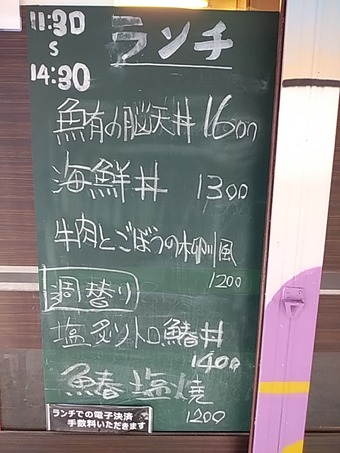 11:30
S
14:30
ランチ
鮪の脳天丼 1600
海鮮丼 1300
牛肉とごぼうの柳川風
1200
週替り
塩炙りトロ鰆丼
1400
鰆塩焼
1200
ランチでの電子決済
手数料いただきます